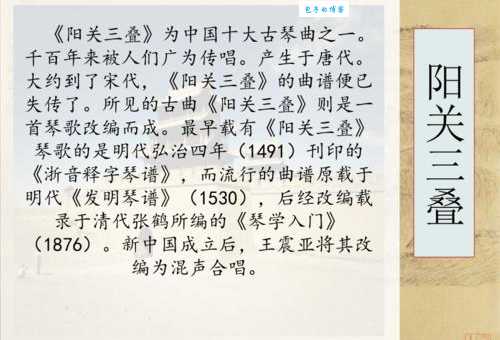 包子的博客
《阳关三叠》为中国十大古琴曲之一。
千百年来被人们广为传唱。产生于唐代。
大约到了宋代，《阳关三叠》的曲谱便已
失传了。所见的古曲《阳关三叠》则是一
首琴歌改编而成。最早载有《阳关三叠》
琴歌的是明代弘治四年（1491）刊印的
《浙音释字琴谱》，而流行的曲谱原载于
明代《发明琴谱》（1530），后经改编载
录于清代张鹤所编的《琴学入门》
（1876）。新中国成立后，王震亚将其改
编为混声合唱。
阳关三叠